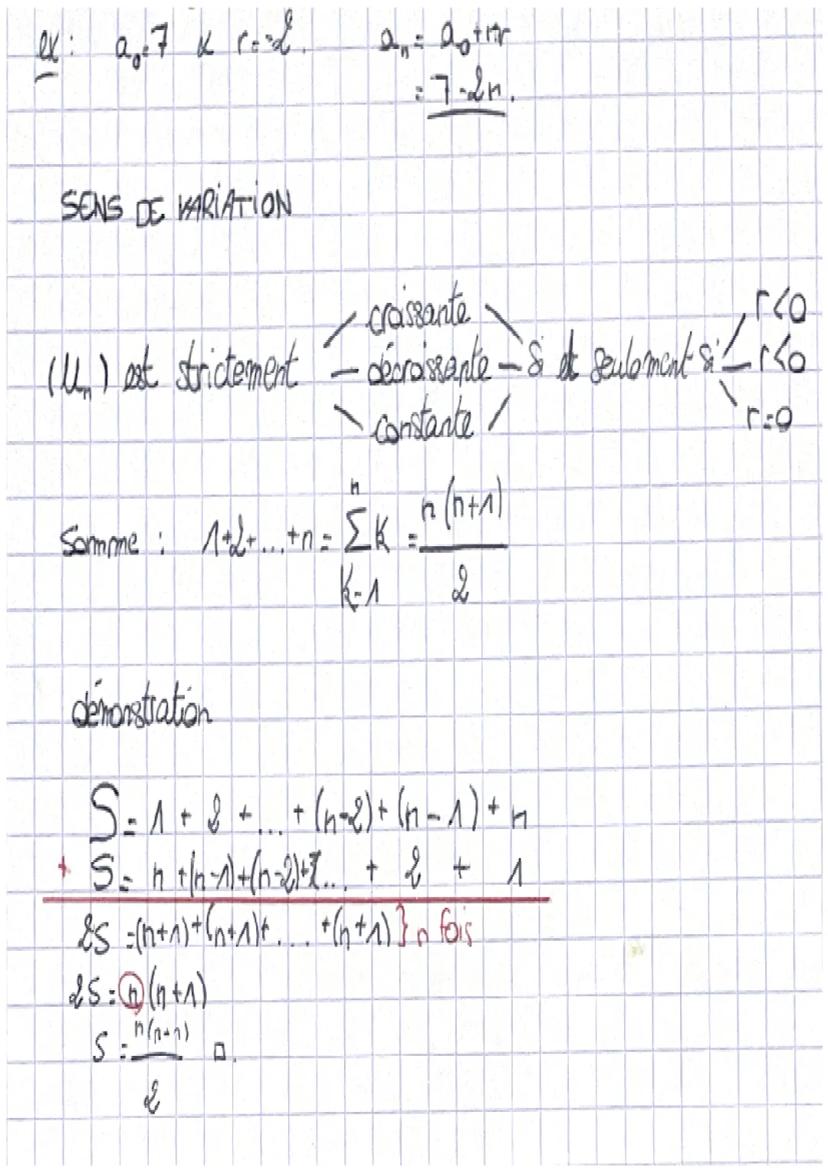 ex: a₀=7 & r=-2. aₙ= a₀+nr
= 7-2n.
SENS DE VARIATION
croissante r<0
(Uₙ) est strictement décroissante si et seulement si r<0
constante r=0
Somme : 1+2+...+n = \sum_{K=1}^{n} K = \frac{n(n+1)}{2}
démonstration
S= 1 + 2 +... + (n-2)+(n-1)+n
+ S= n+(n-1)+(n-2)+... + 2 + 1
2S =(n+1)+(n+1)+... +(n+1)} n fois
2S= n(n+1)
S = \frac{n(n+1)}{2} □.